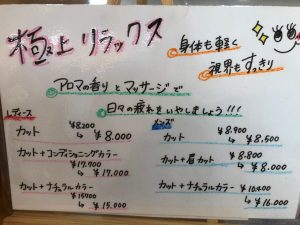 極上リラックス
身体も軽く
視界もすっきり
アロマの香りとマッサージで
日々の疲れをいやしましょう!!!
レディース
カット ¥8.200
↳ ¥8.000
カット+コンディショニングカラー
¥17.700
↳ ¥17.000
カット+ナチュラルカラー
¥15700
↳ ¥15.000
メンズ
カット ¥8.900
↳ ¥8.500
カット+眉カット ¥8.800
↳ ¥8.000
カット+ナチュラルカラー
↳ ¥16.000